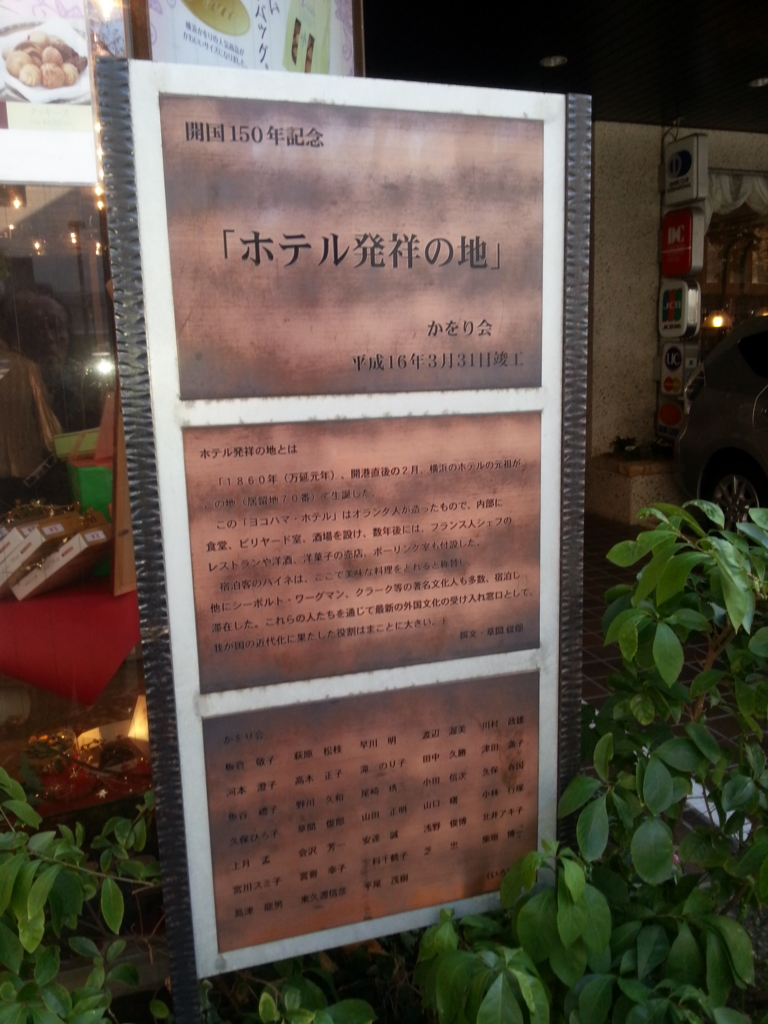 開国150年記念
「ホテル発祥の地」
かをり会
平成16年3月31日竣工
ホテル発祥の地とは
「1860年(万延元年)、開港直後の2月、横浜のホテルの元祖が
この地(居留地70番)で生誕した。
この「ヨコハマ・ホテル」はオランダ人が造ったもので、内部に
食堂、ビリヤード室、酒場を設け、数年後には、フランス人シェフの
レストランや洋酒、洋菓子の売店、ボーリング室も付設した。
宿泊客のハイネは、ここで美味な料理をとれると称賛!
他にシーボルト・ワーグマン、クラーク等の著名文化人も多数、宿泊し
滞在した。これらの人たちを通じて最新の外国文化の受け入れ窓口として、
我が国の近代化に果たした役割はまことに大きい。」
撰文・草間俊郎
かをり会
板倉 敬子 萩原 松枝 早川 明 渡辺 渥美 川村
河本 澄子 高木 正子 滝 のり子 田中 久勝 津田
禮子 野川 久和 尾崎 小田 信次 久保
久保ひろ子 草間 俊郎 山田 正明 山口 曙 小林
上月 孟 会沢 芳一 安達 誠 浅野 俊博 北井アキ子
宮川スミ子 宮崎 幸子 科千鶴子 芝 忠 柴田 博
島津 龍男 東久邇信彦 平尾 茂樹
DC
JCB
UC